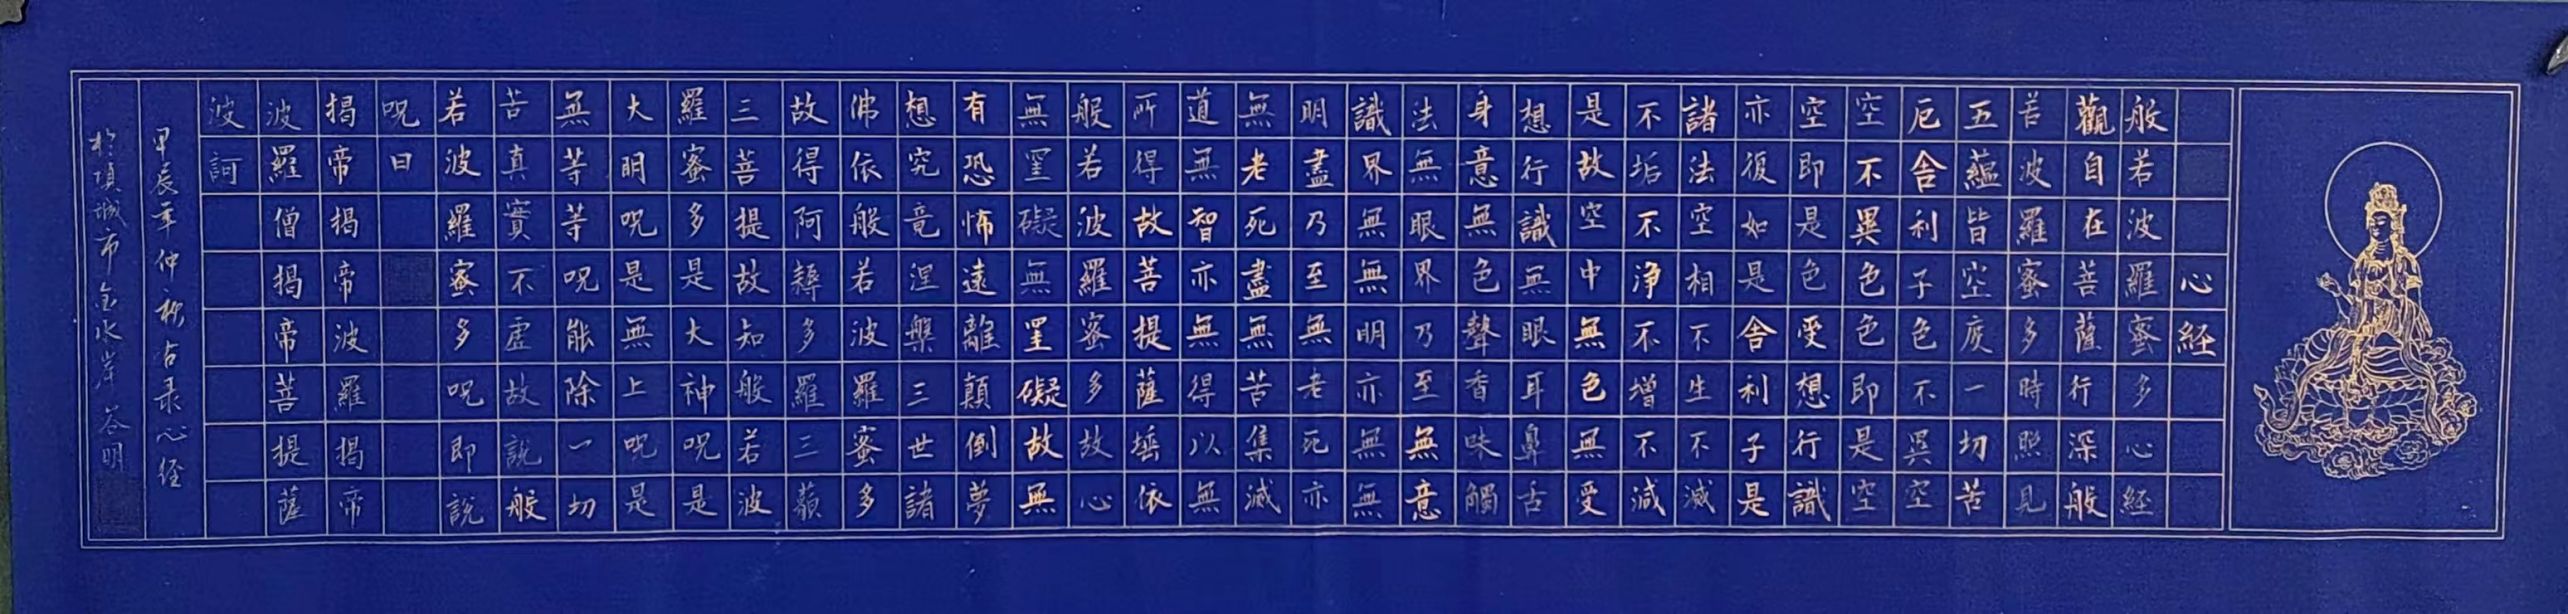 心経
般若波羅蜜多心経
觀自在菩薩行深般
若波羅蜜多時照見
五蘊皆空度一切苦
厄舍利子色不異空
空不異色色即是空
空即是色受想行識
亦復如是舍利子是
諸法空相不生不滅
不垢不浄不增不減
是故空中無色無受
想行識無眼耳鼻舌
身意無色聲香味觸
法無眼界乃至無意
識界無無明亦無無
明盡乃至無老死亦
無老死盡無苦集滅
道無智亦無得以無
所得故菩提薩埵依
般若波羅蜜多故心
無罣礙無罣礙故無
有恐怖遠離顛倒夢
想究竟涅槃三世諸
佛依般若波羅蜜多
故得阿耨多羅三藐
三菩提故知般若波
羅蜜多是大神呪是
大明呪是無上呪是
無等等呪能除一切
苦真實不虛故說般
若波羅蜜多呪即說
呪曰
揭帝揭帝波羅揭帝
波羅僧揭帝菩提薩
波訶
甲辰年仲秋古录心经
於項城市金水岸 谷明